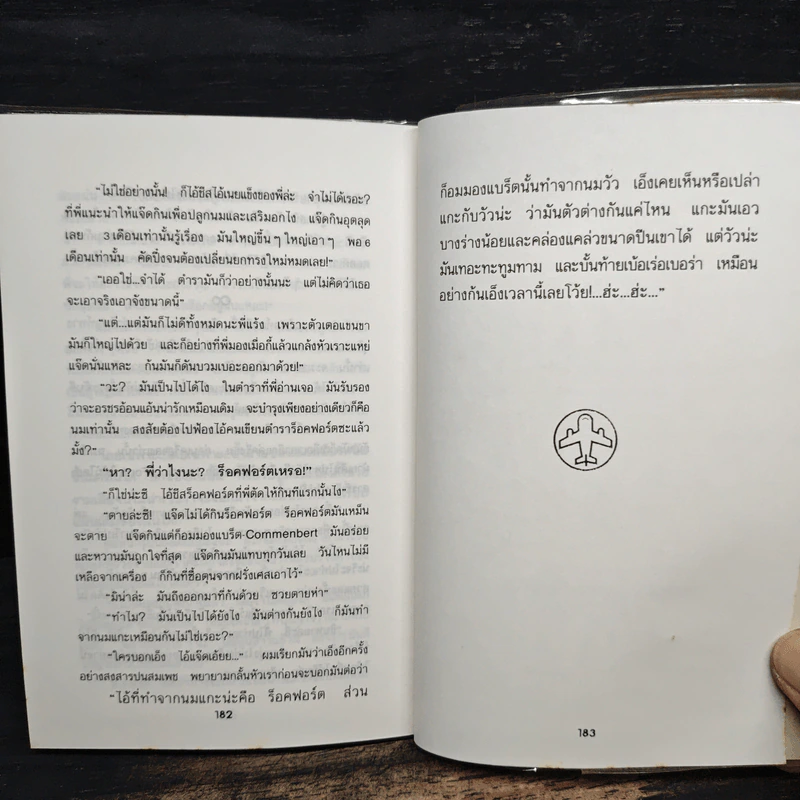 "ไม่ใช่อย่างนั้น! ก็ไอ้ชีสไอ้เนยแข็งของพี่ล่ะ จำไม่ได้เรอะ?
ที่พี่แนะนำให้แจ๊ดกินเพื่อปลูกนมและเสริมอกไง แจ๊ดกินอุตลุด
เลย 3 เดือนเท่านั้นรู้เรื่อง มันใหญ่ขึ้นๆ ใหญ่เอาๆ พอ 6
เดือนเท่านั้น คัดปึ๋งจนต้องเปลี่ยนยกทรงใหม่หมดเลย!"
"เออใช่...จำได้ ตำรามันก็ว่าอย่างนั้นนะ แต่ไม่คิดว่าเธอ
จะเอาจริงเอาจังขนาดนี้"
"แต่...แต่มันก็ไม่ดีทั้งหมดนะพี่แร้ง เพราะตัวเตอแขนขา
มันก็ใหญ่ไปด้วย และก็อย่างที่พี่มองเมื่อกี้แล้วแกล้งหัวเราะแหย่
แจ๊ดนั่นแหละ ก้นมันก็ดันบวมเบอะออกมาด้วย!"
"วะ? มันเป็นไปได้ไง ในตำราที่พี่อ่านเจอ มันรับรอง
ว่าจะอรชรอ้อนแอ้นน่ารักเหมือนเดิม จะบำรุงเพียงอย่างเดียวก็คือ
นมเท่านั้น สงสัยต้องไปฟ้องไอ้คนเขียนตำราร็อคฟอร์ตซะแล้ว
มั้ง?"
"หา? พี่ว่าไงนะ? ร็อคฟอร์ตเหรอ!"
"ก็ใช่น่ะซิ ไอ้ชีสร็อคฟอร์ตที่พี่ตัดให้กินทีแรกนั้นไง"
"ตายล่ะซิ! แจ๊ดไม่ได้กินร็อคฟอร์ต ร็อคฟอร์ตมันเหม็น
จะตาย แจ๊ดกินแต่ก็อมมองแบร็ต-Commenbert มันอร่อย
และหวานมันถูกใจที่สุด แจ๊ดกินมันแทบทุกวันเลย วันไหนไม่มี
เหลือจากเครื่อง ก็กินที่ซื้อตุนจากฝรั่งเศสเอาไว้"
"มิน่าล่ะ มันถึงออกมาที่ก้นด้วย ซวยตายห่า"
"ทำไม? มันเป็นไปได้ยังไง มันต่างกันยังไง ก็มันทำ
จากนมแกะเหมือนกันไม่ใช่เรอะ?"
"ใครบอกเอ็ง ไอ้แจ๊ดเอ้ยย..." ผมเรียกมันว่าเอ็งอีกครั้ง
อย่างสงสารปนสมเพช พยายามกลั้นหัวเราะก่อนจะบอกมันต่อว่า
"ไอ้ที่ทำจากนมแกะน่ะคือ ร็อคฟอร์ต ส่วน
182
ก็อมมองแบร็ตนั้นทำจากนมวัว เอ็งเคยเห็นหรือเปล่า
แกะกับวัวน่ะ ว่ามันตัวต่างกันแค่ไหน แกะมันเอว
บางร่างน้อยและคล่องแคล่วขนาดปีนเขาได้ แต่วัวน่ะ
มันเทอะทะทูมทาม และบั้นท้ายเบ้อเร่อเบอร่า เหมือน
อย่างก้นเอ็งเวลานี้เลยโว้ย!...ฮ่ะ...ฮ่ะ..."
183